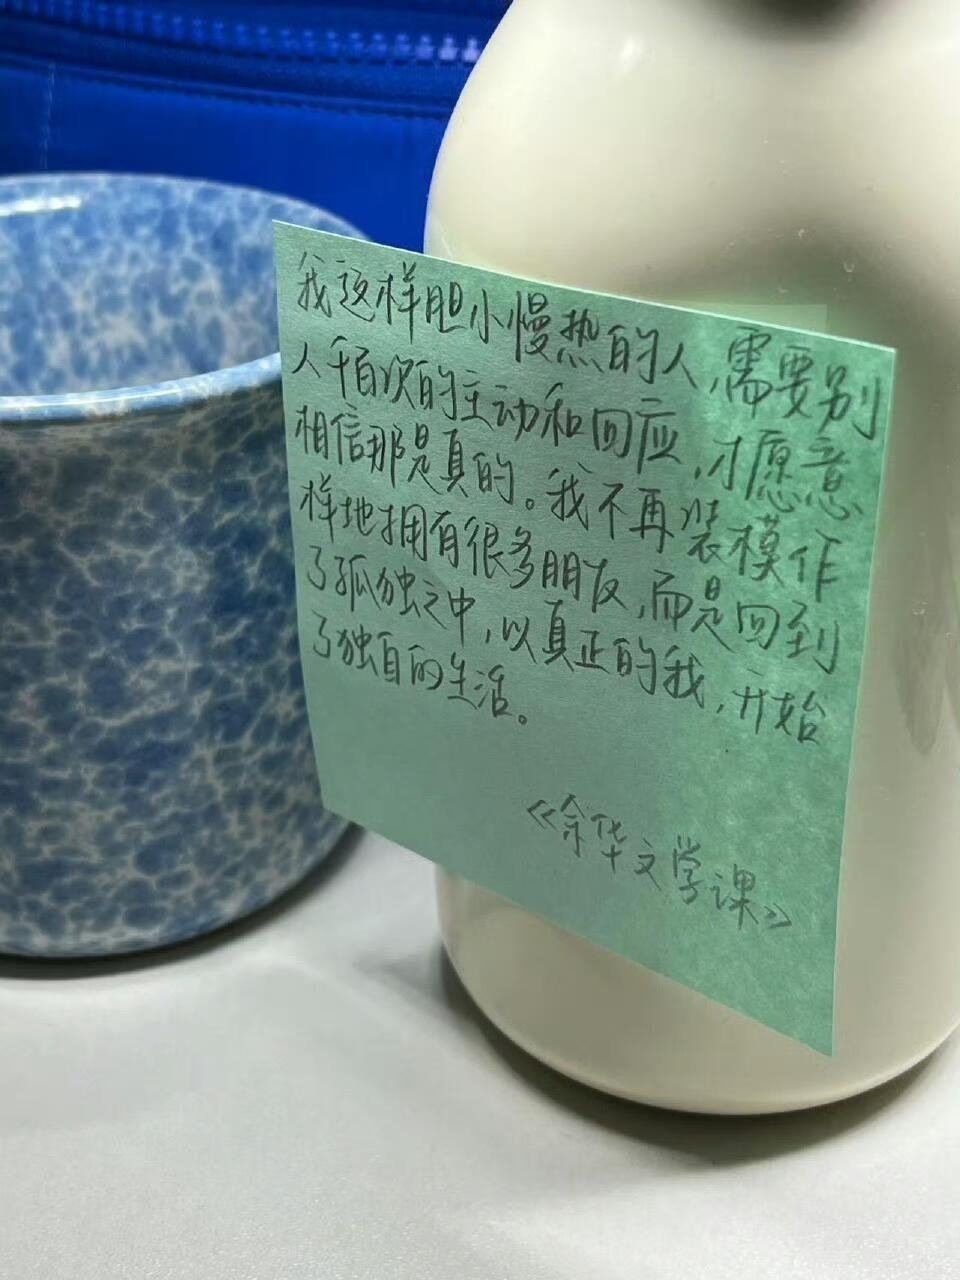 我这样胆小慢热的人,需要别
人千百次的主动和回应,才愿意
相信那是真的。我不再装模作
样地拥有很多朋友,而是回到
了孤独之中,以真正的我,开始
了独自的生活。
《余华文学课》